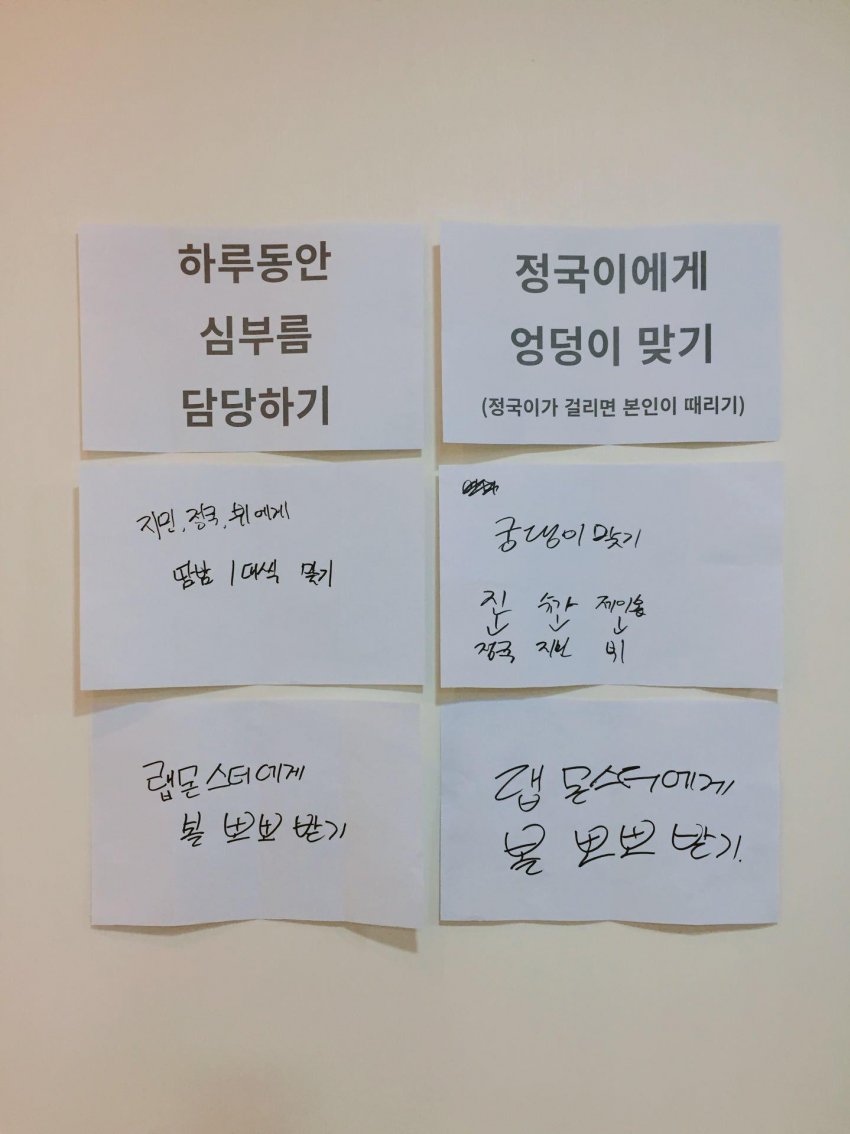 하루동안
심부름
담당하기
정국이에게
엉덩이 맞기
(정국이가 걸리면 본인이 때리기)
지민, 정국, 뷔에게
땀밤 1대씩 맞기
궁댕이 맞기
진 슈가 제이홉
정국 지민 뷔
랩몬스터에게
볼 뽀뽀 받기
랩몬스터에게
볼 뽀뽀 받기.